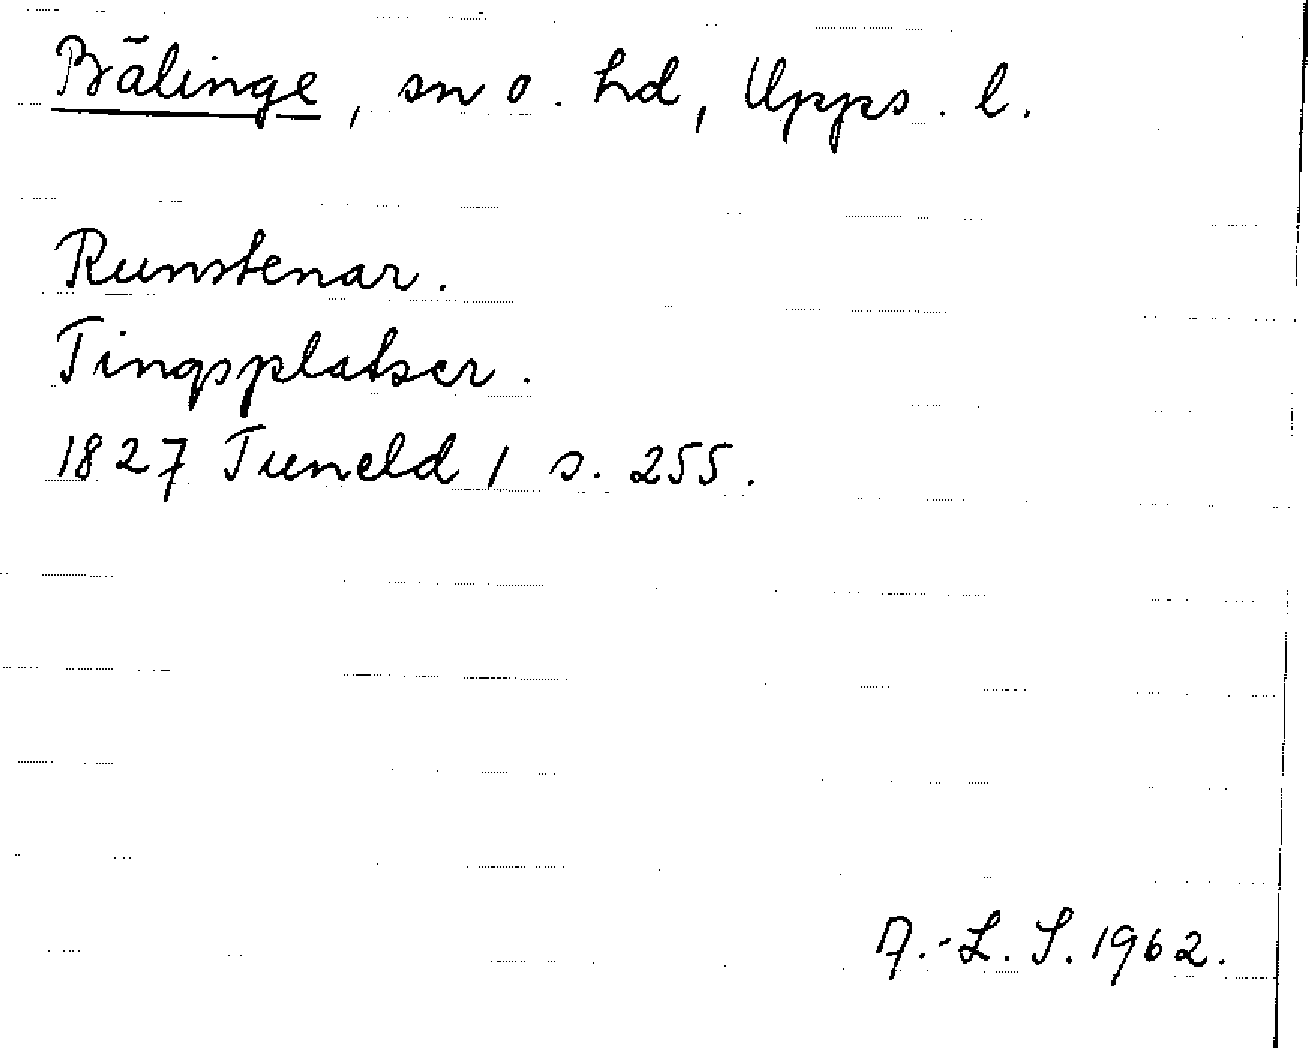 Bälinge, sn o. hd, Upps. l.
Runstenar.
Tingsplatser.
1827 Tuneld 1 s. 255.
A.-L. S. 1962.